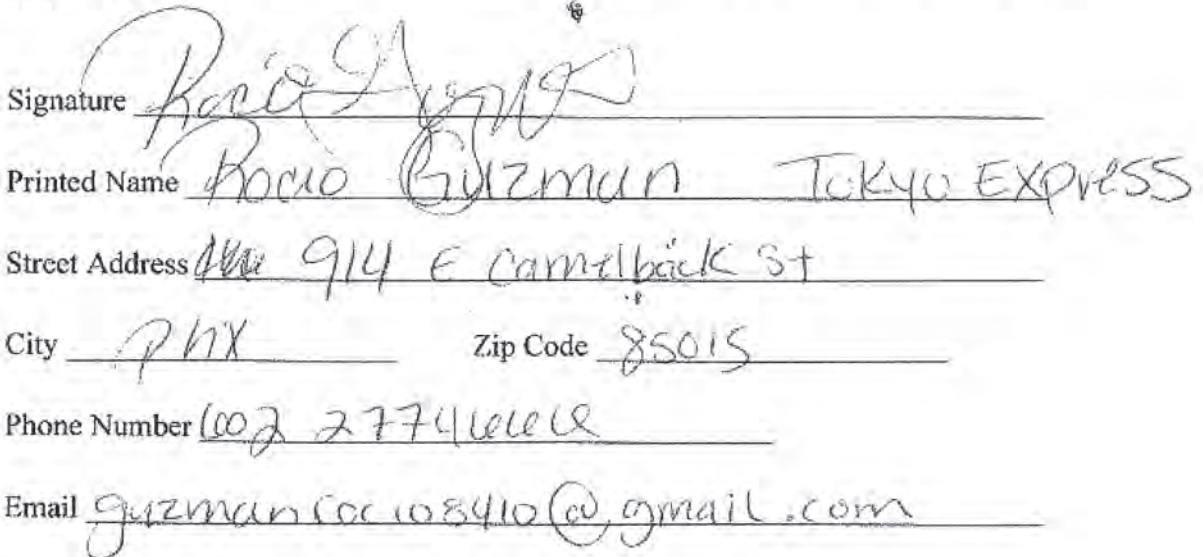 Signature Rocio Guzman
Printed Name Rocio Guzman Tokyo Express
Street Address 914 E Camelback St
City Phx Zip Code 85015
Phone Number 602 2774666
Email guzmanrocio8410@gmail.com